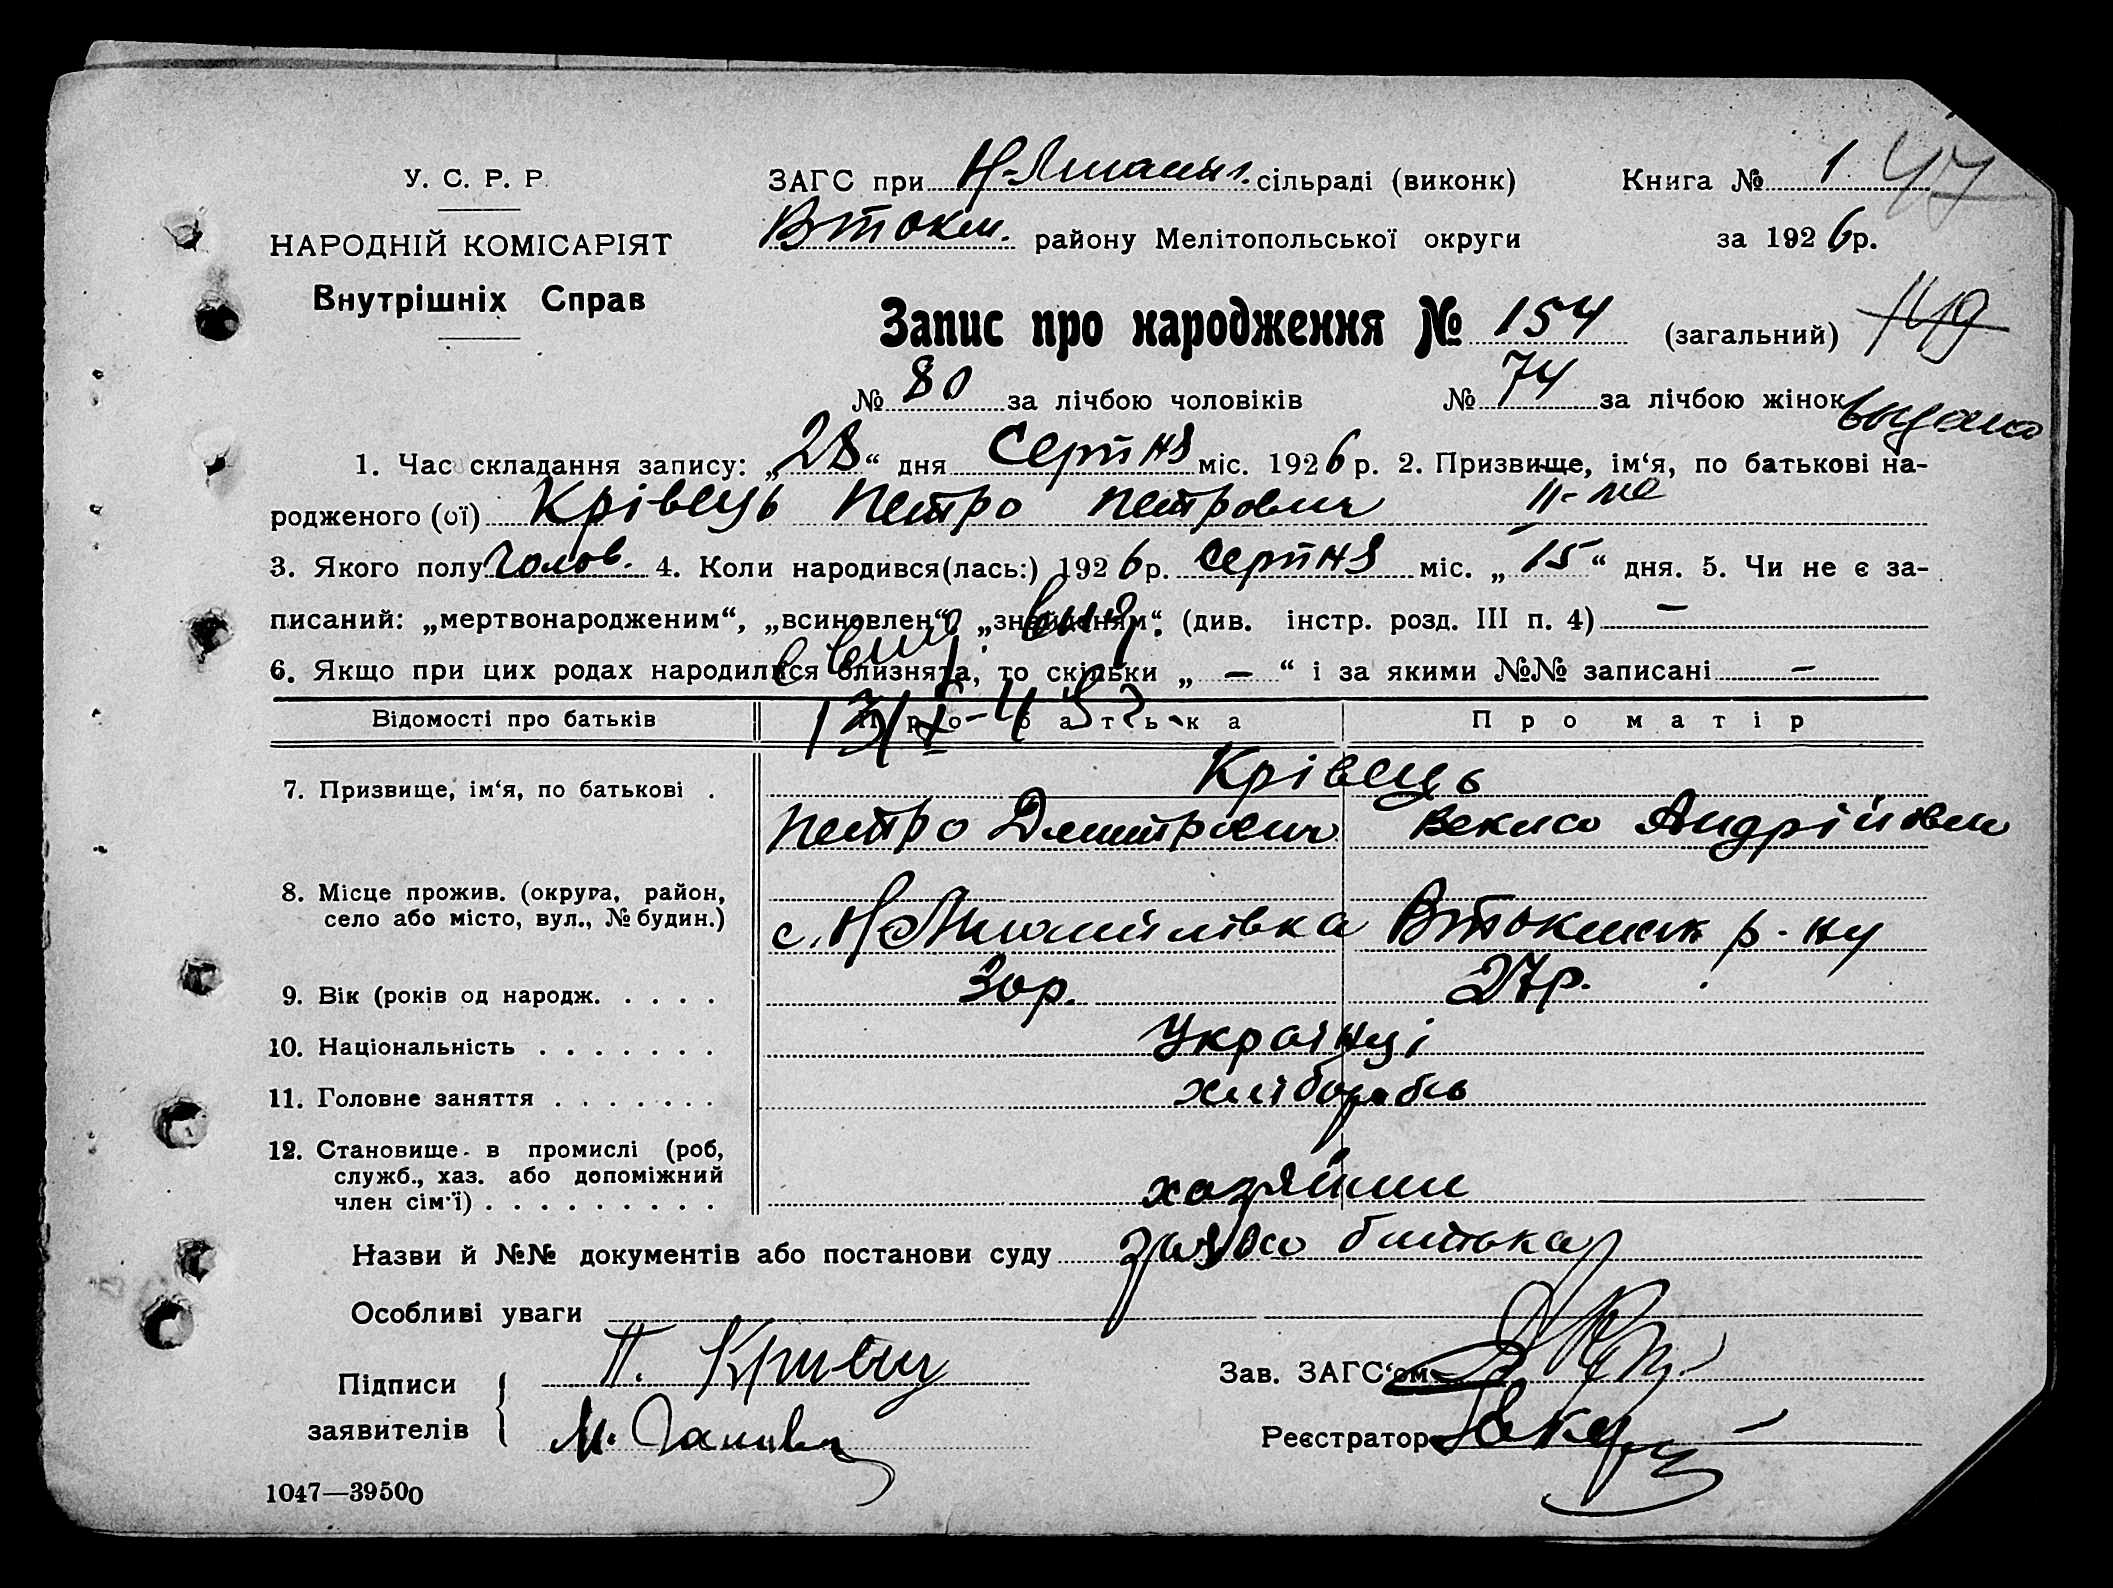 У. С. Р. Р.
НАРОДНІЙ КОМІСАРІЯТ
Внутрішніх Справ
ЗАГС при сільраді (виконк)
Втокм. району Мелітопольської округи
Книга № 1 47
за 1926 р.
Запис про народження № 154 (загальний) 149
№ 80 за лічбою чоловіків № 74 за лічбою жінок
1. Час складання запису: „28“ дня Серпня міс. 1926 р. 2. Призвище, ім‘я, по батькові на-
родженого (ої) Крівець Петро Петрович ІІ-те
3. Якого полу чолов. 4. Коли народився(лась:) 1926 р. серпня міс. „15“ дня. 5. Чи не є за-
писаний: „мертвонародженим“, „всиновлен“, „знайденям“. (див. інстр. розд. III п. 4) —
6. Якщо при цих родах народилися близнята, то скільки „ — “ і за якими №№ записані —
Відомості про батьків Про батька Про матір
7. Призвище, ім‘я, по батькові . Крівець
Петро Дмитрович Андрійовна
8. Місце прожив. (округа, район,
село або місто, вул., № будин.)
с. Втокмак р-ну
9. Вік (років од народж. . . . . 30 р. 27 р.
10. Національність . . . . . . . Українці
11. Головне заняття . . . . . . . хлібороби
12. Становище в промислі (роб,
служб., хаз. або допоміжний
член сім‘ї) . . . . . . . . . хазяйни
Назви й №№ документів або постанови суду заява батька
Особливі уваги
Підписи
заявителів
П. Кривец
М.
Зав. ЗАГС‘ом
Реєстратор
1047—39500